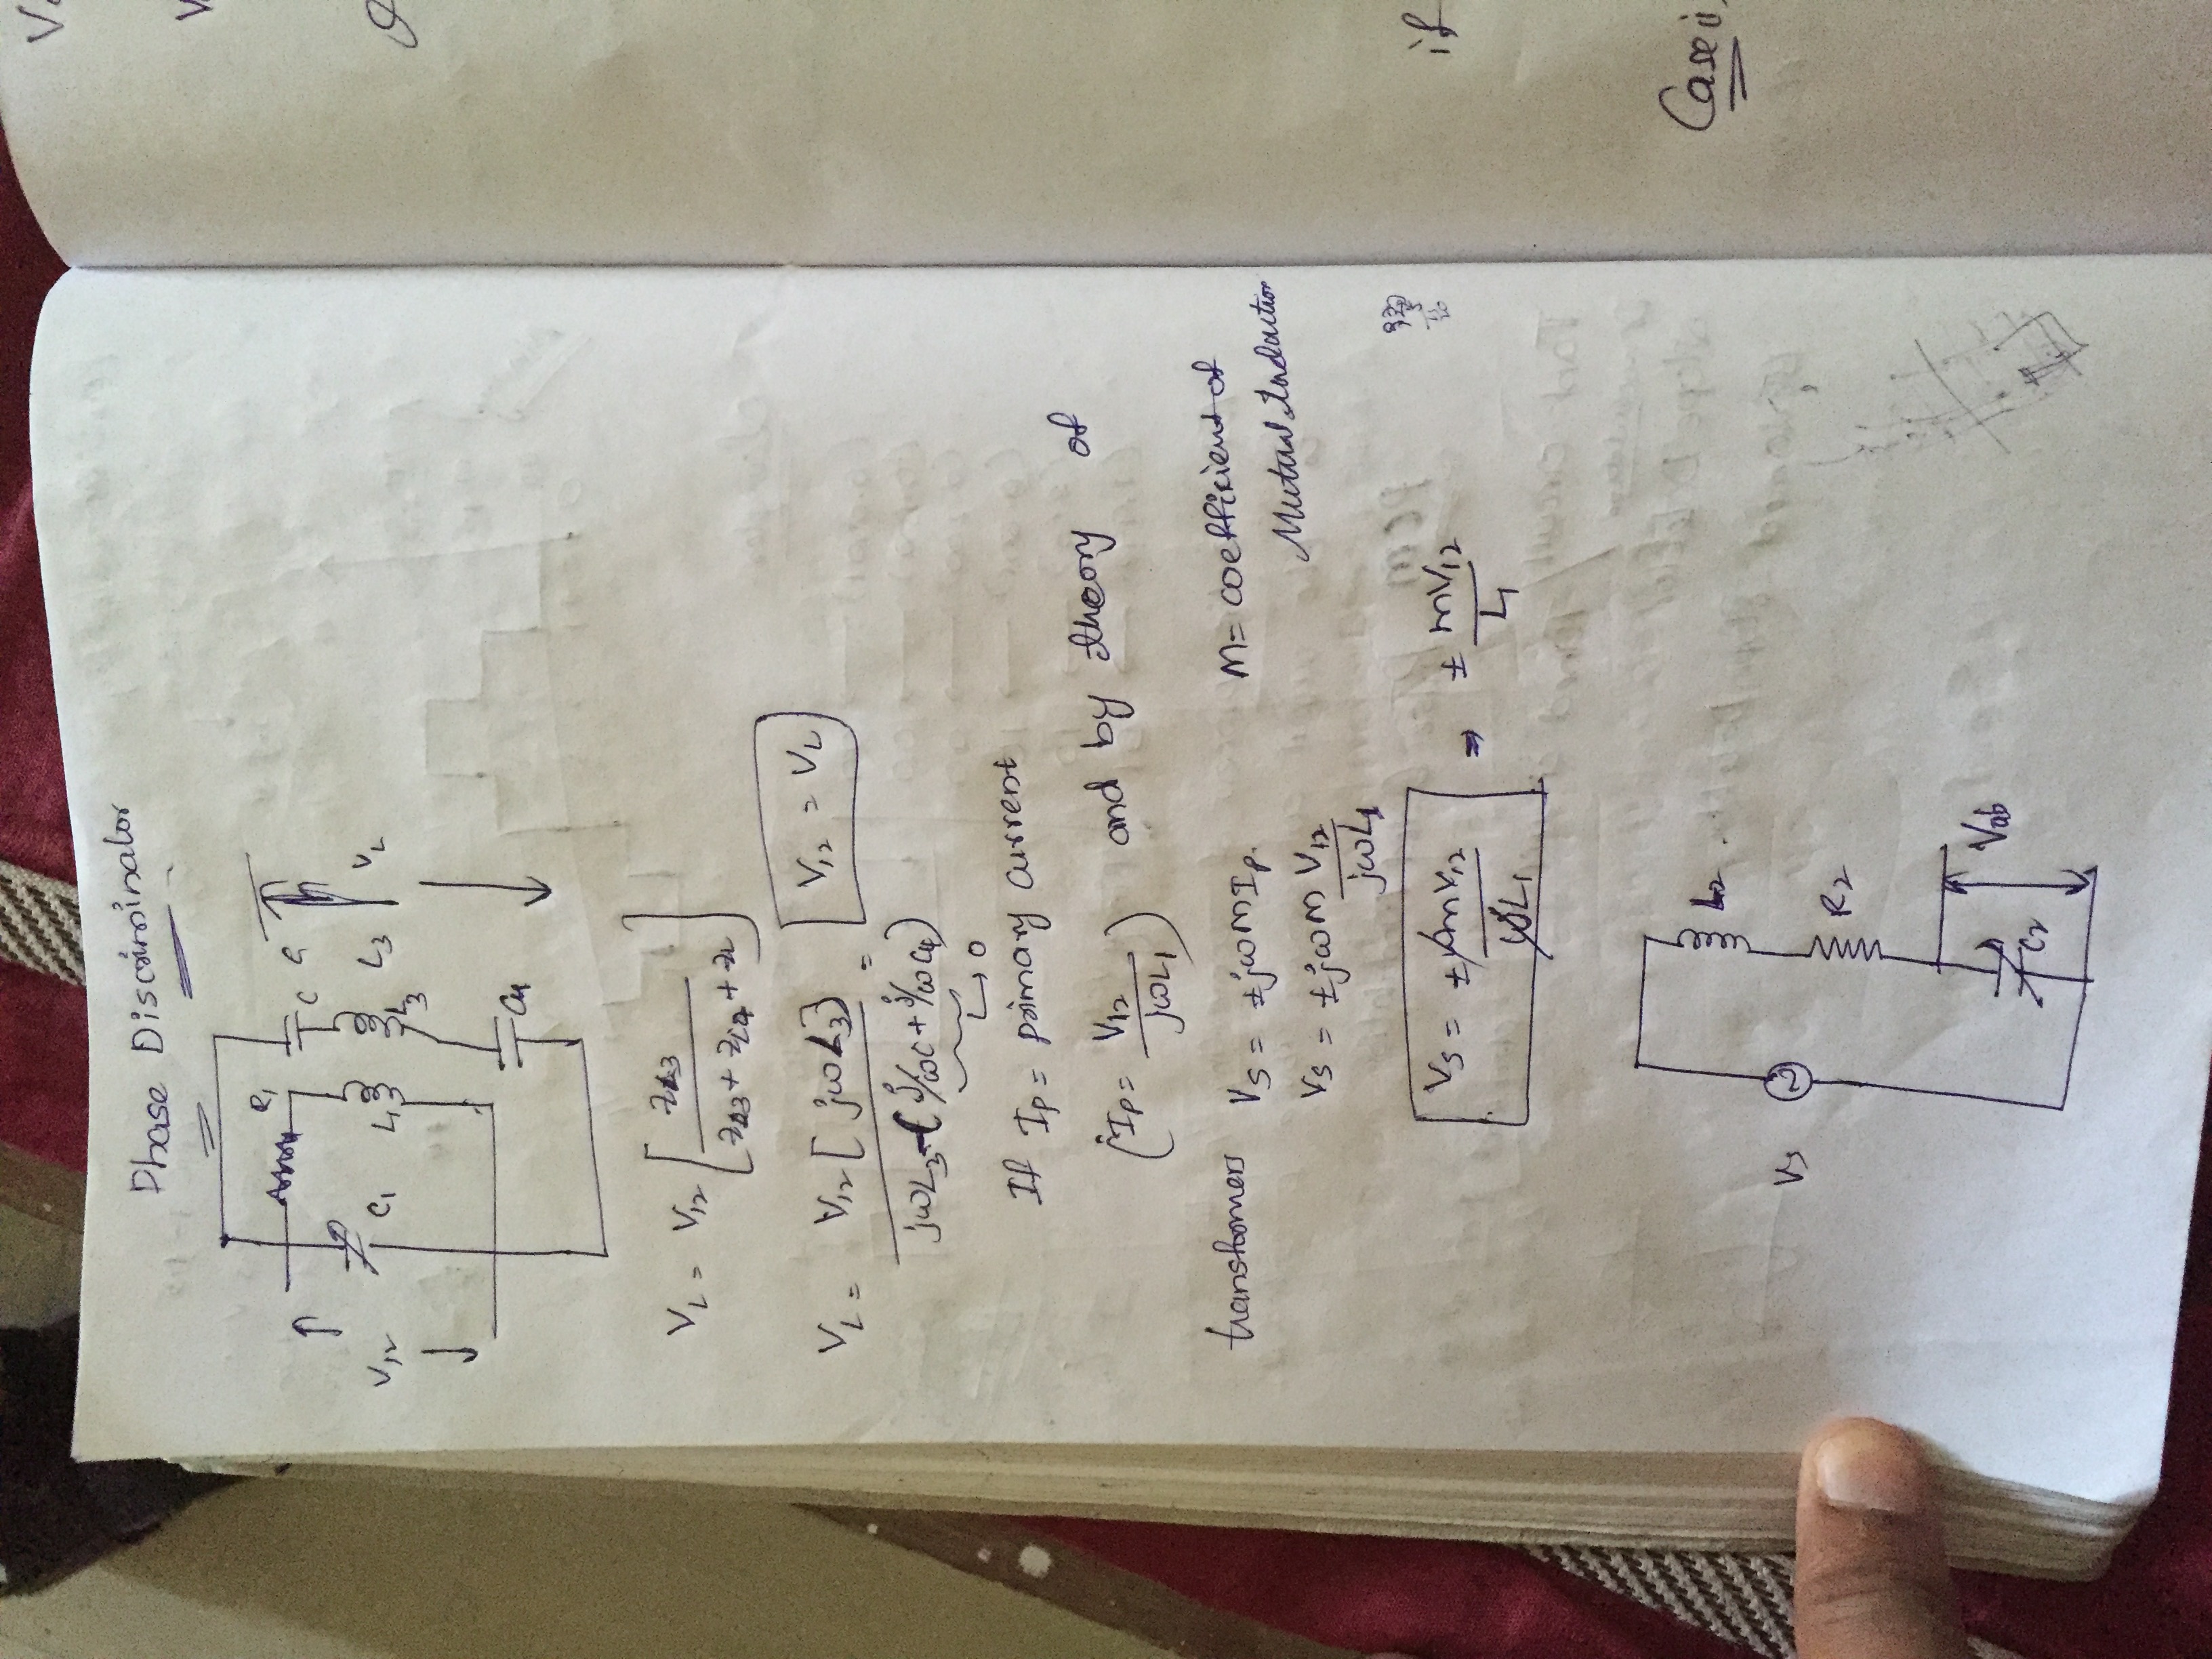 Phase Discriminator
R1
C
C1
L1
L3
L3
VL
V12
C4
VL = V12 [ ZL3 / ZL3 + ZC4 + ZC ]
VL = V12 [ jωL3 ] / jωL3 - ( j/ωC + j/ωC4 ) = V12 = VL
↳ 0
If IP = primary current
( IP = V12 / jωL1 ) and by theory of
transformers VS = ±jωM IP. M = coefficient of
Mutual Induction
VS = ±jωM V12 / jωL1
VS = ± ωmV12 / ωL1 ⇒ ± mV12 / L1
L2
VS
R2
Vab
C2
if
Case i,